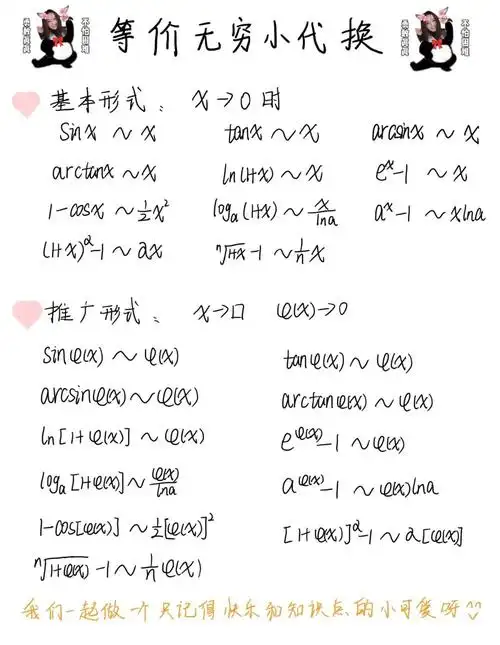 等价无穷小代换
基本形式： x→0时
sinx ~ x tanx ~ x arcsinx ~ x
arctanx ~ x ln(1+x) ~ x eˣ-1 ~ x
1-cosx ~ ½x² logₐ(1+x) ~ x/lna aˣ-1 ~ xlna
(1+x)ᵅ-1 ~ αx ⁿ√(1+x) -1 ~ 1/n x
推广形式： x→口 φ(x)→0
sinφ(x) ~ φ(x) tanφ(x) ~ φ(x)
arcsinφ(x) ~ φ(x) arctanφ(x) ~ φ(x)
ln[1+φ(x)] ~ φ(x) e^φ(x)-1 ~ φ(x)
logₐ[1+φ(x)] ~ φ(x)/lna a^φ(x)-1 ~ φ(x)lna
1-cos[φ(x)] ~ ½[φ(x)]² [1+φ(x)]ᵅ-1 ~ α[φ(x)]
ⁿ√(1+φ(x)) -1 ~ 1/n φ(x)
我们一起做一个只记得快乐和知识点的小可爱呀